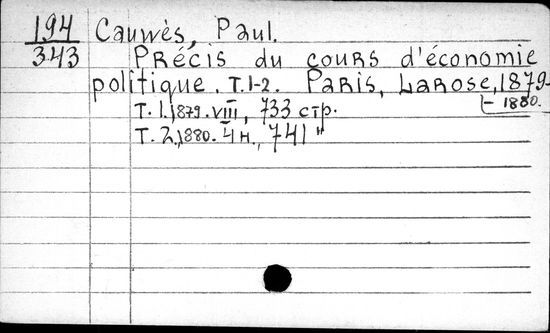 194 Cauwès, Paul.
343 Précis du cours d'économie
politique. T. 1-2. Paris, Larose, 1879-
- 1880.
T. 1. 1879. VIII, 733 стр.
T. 2. 1880. 4 н., 741 "